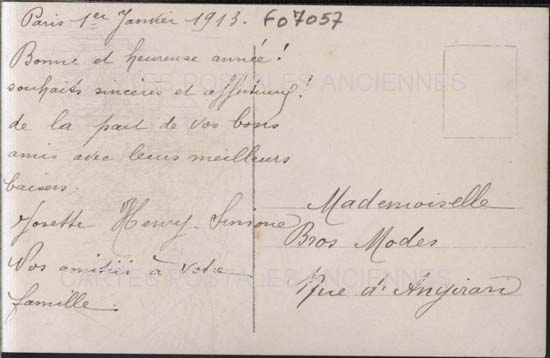 Paris 1er Janvier 1913.
F07057
Bonne et heureuse année!
souhaits sincères et affectueux!
de la part de vos bons
amis avec leurs meilleurs
baisers.
Josette Henry. Simone
Vos amitiés à votre
famille.
Mademoiselle
Bros Modes
Rue d'
CARTES POSTALES ANCIENNES
CARTES POSTALES ANCIENNES